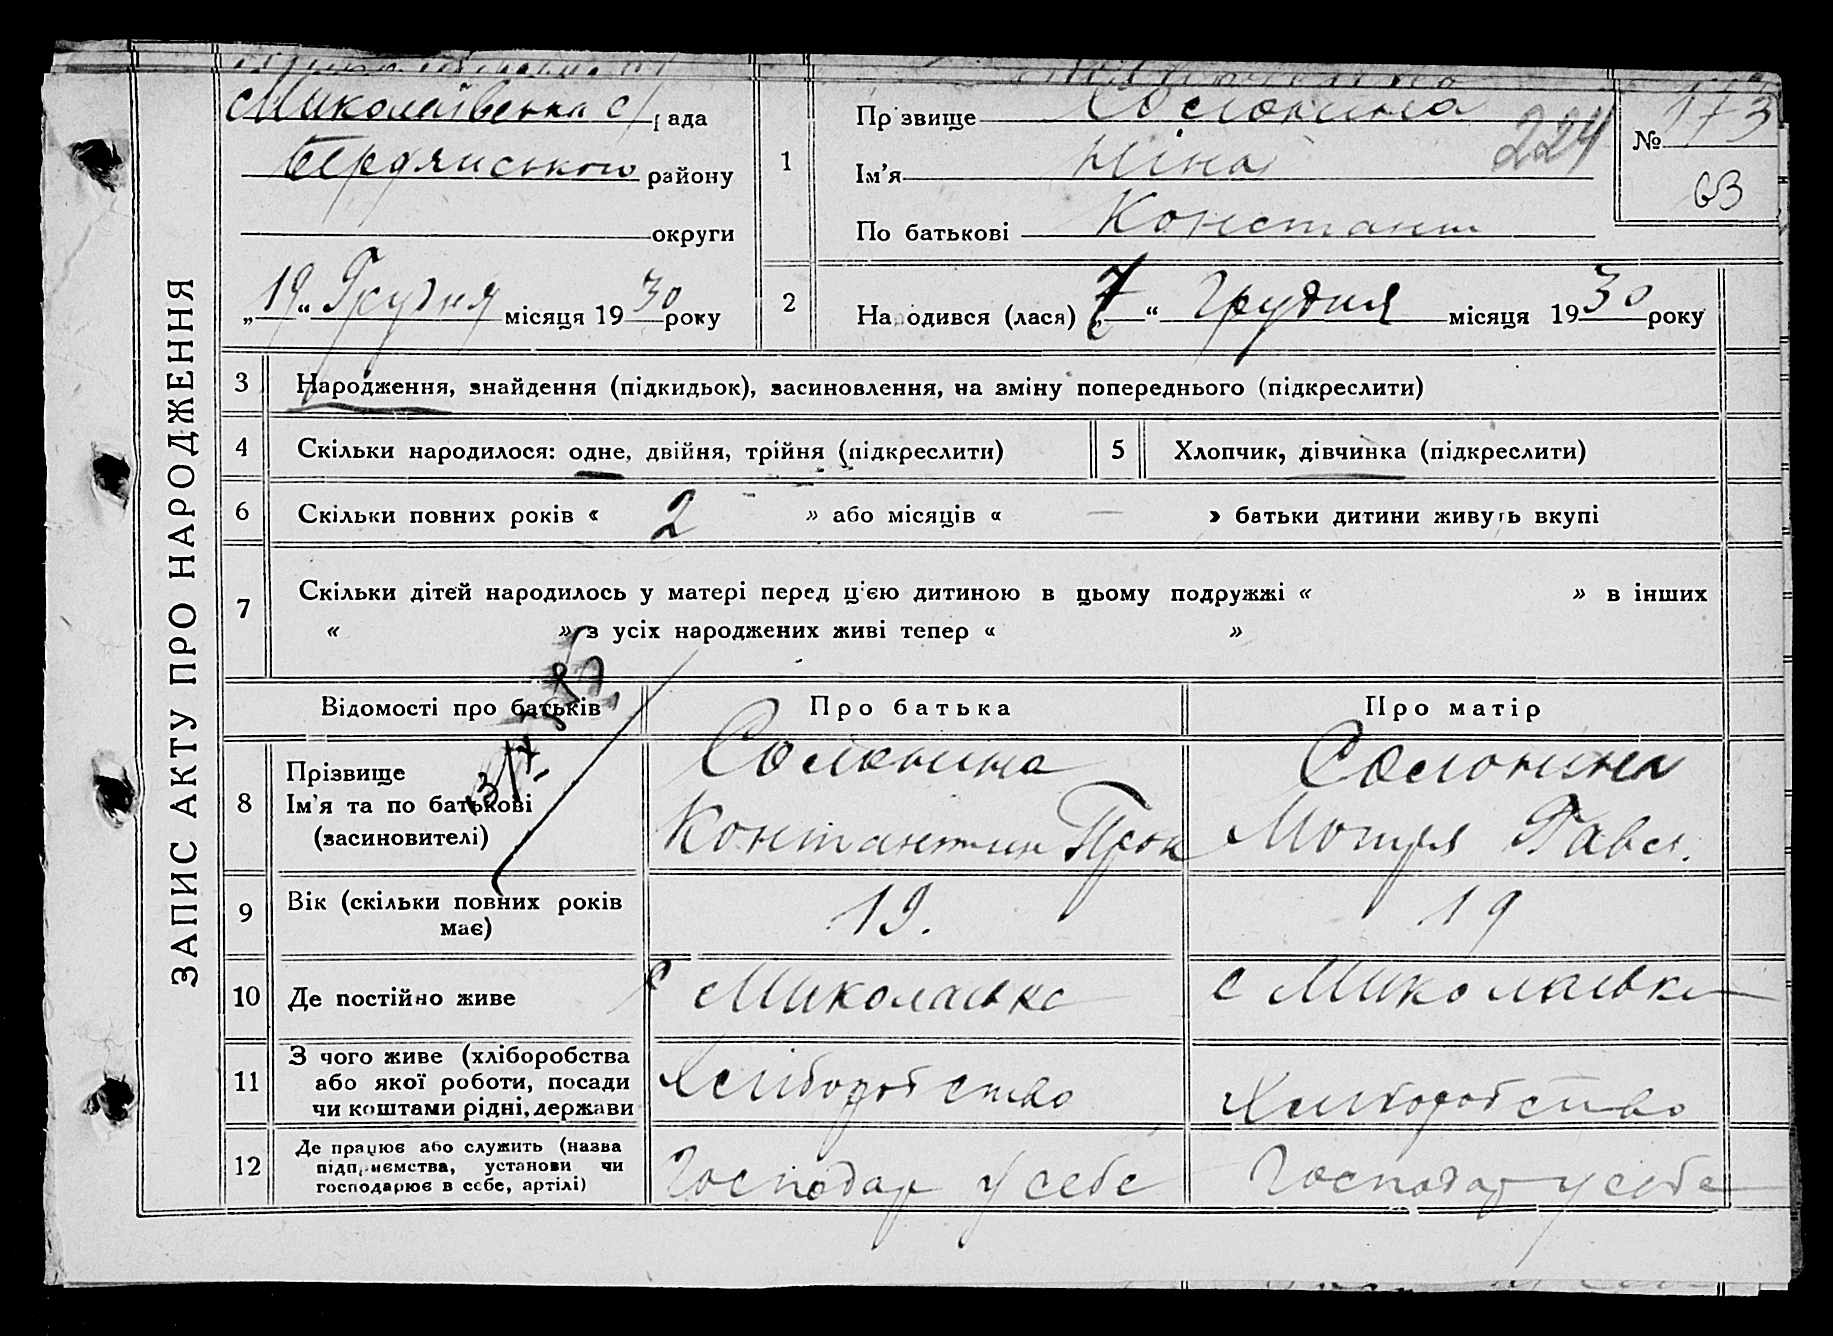 ЗАПИС АКТУ ПРО НАРОДЖЕННЯ
Миколаївська с/рада
Бердянського району
округи
„19“ Грудня місяця 1930 року
1
Прізвище Солонина
Ім'я Ніна
По батькові Констант
224
№ 173
63
2
Народився (лася) „7“ Грудня місяця 1930 року
3 Народження, знайдення (підкидьок), засиновлення, на зміну попереднього (підкреслити)
4 Скільки народилося: одне, двійня, трійня (підкреслити)
5 Хлопчик, дівчинка (підкреслити)
6 Скільки повних років « 2 » або місяців « — » батьки дитини живуть вкупі
7 Скільки дітей народилось у матері перед цією дитиною в цьому подружжі « » в інших
« » з усіх народжених живі тепер « »
Відомості про батьків Про батька Про матір
8 Прізвище
Ім'я та по батькові
(засиновителі)
Солонина
Контантин Прок
Солонина
Мотря Павл.
9 Вік (скільки повних років
має)
19.
19
10 Де постійно живе
с Миколаівка
с Миколаівка
11 З чого живе (хліборобства
або якої роботи, посади
чи коштами рідні, держави
Хліборобство
Хліборобство
12 Де працює або служить (назва
підприємства, установи чи
господарює в себе, артілі)
Господар у себе
Господар у себе